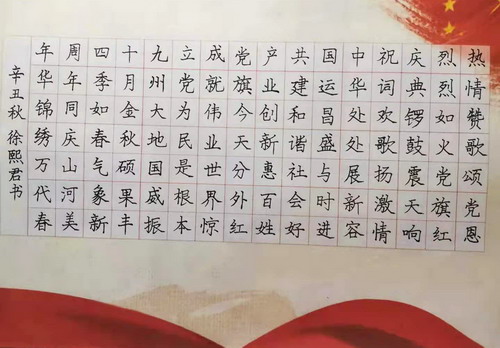 热情赞歌颂党恩
烈烈如火党旗红
庆典锣鼓震天响
祝词欢歌扬激情
中华处处展新容
国运昌盛与时进
共建和谐社会好
产业创新惠百姓
党旗今天分外红
成就伟业世界惊
立党为民是根本
九州大地国威振
十月金秋硕果丰
四季如春气象新
周年同庆山河美
年华锦绣万代春
辛丑秋徐熙君书